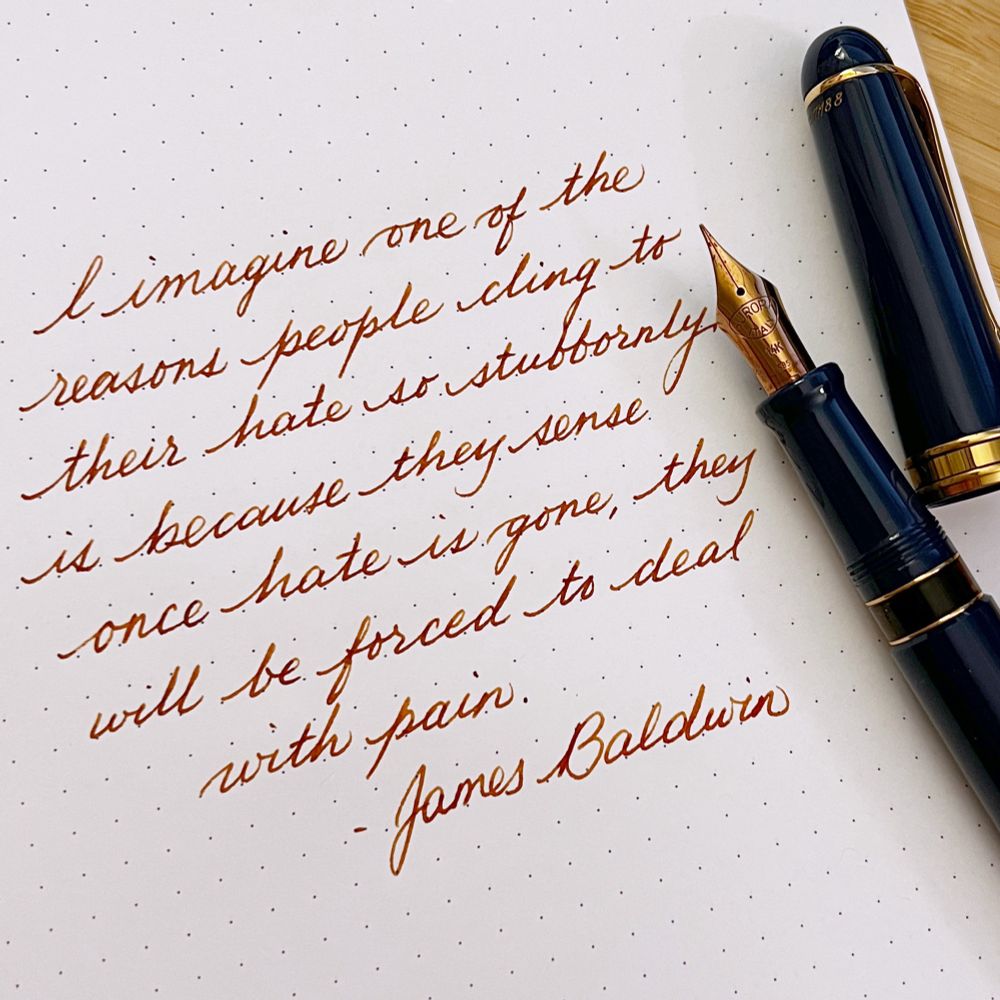 I imagine one of the
reasons people cling to
their hate so stubbornly,
is because they sense
once hate is gone, they
will be forced to deal
with pain.
- James Baldwin
88
AURORA
ITALY
14K
585